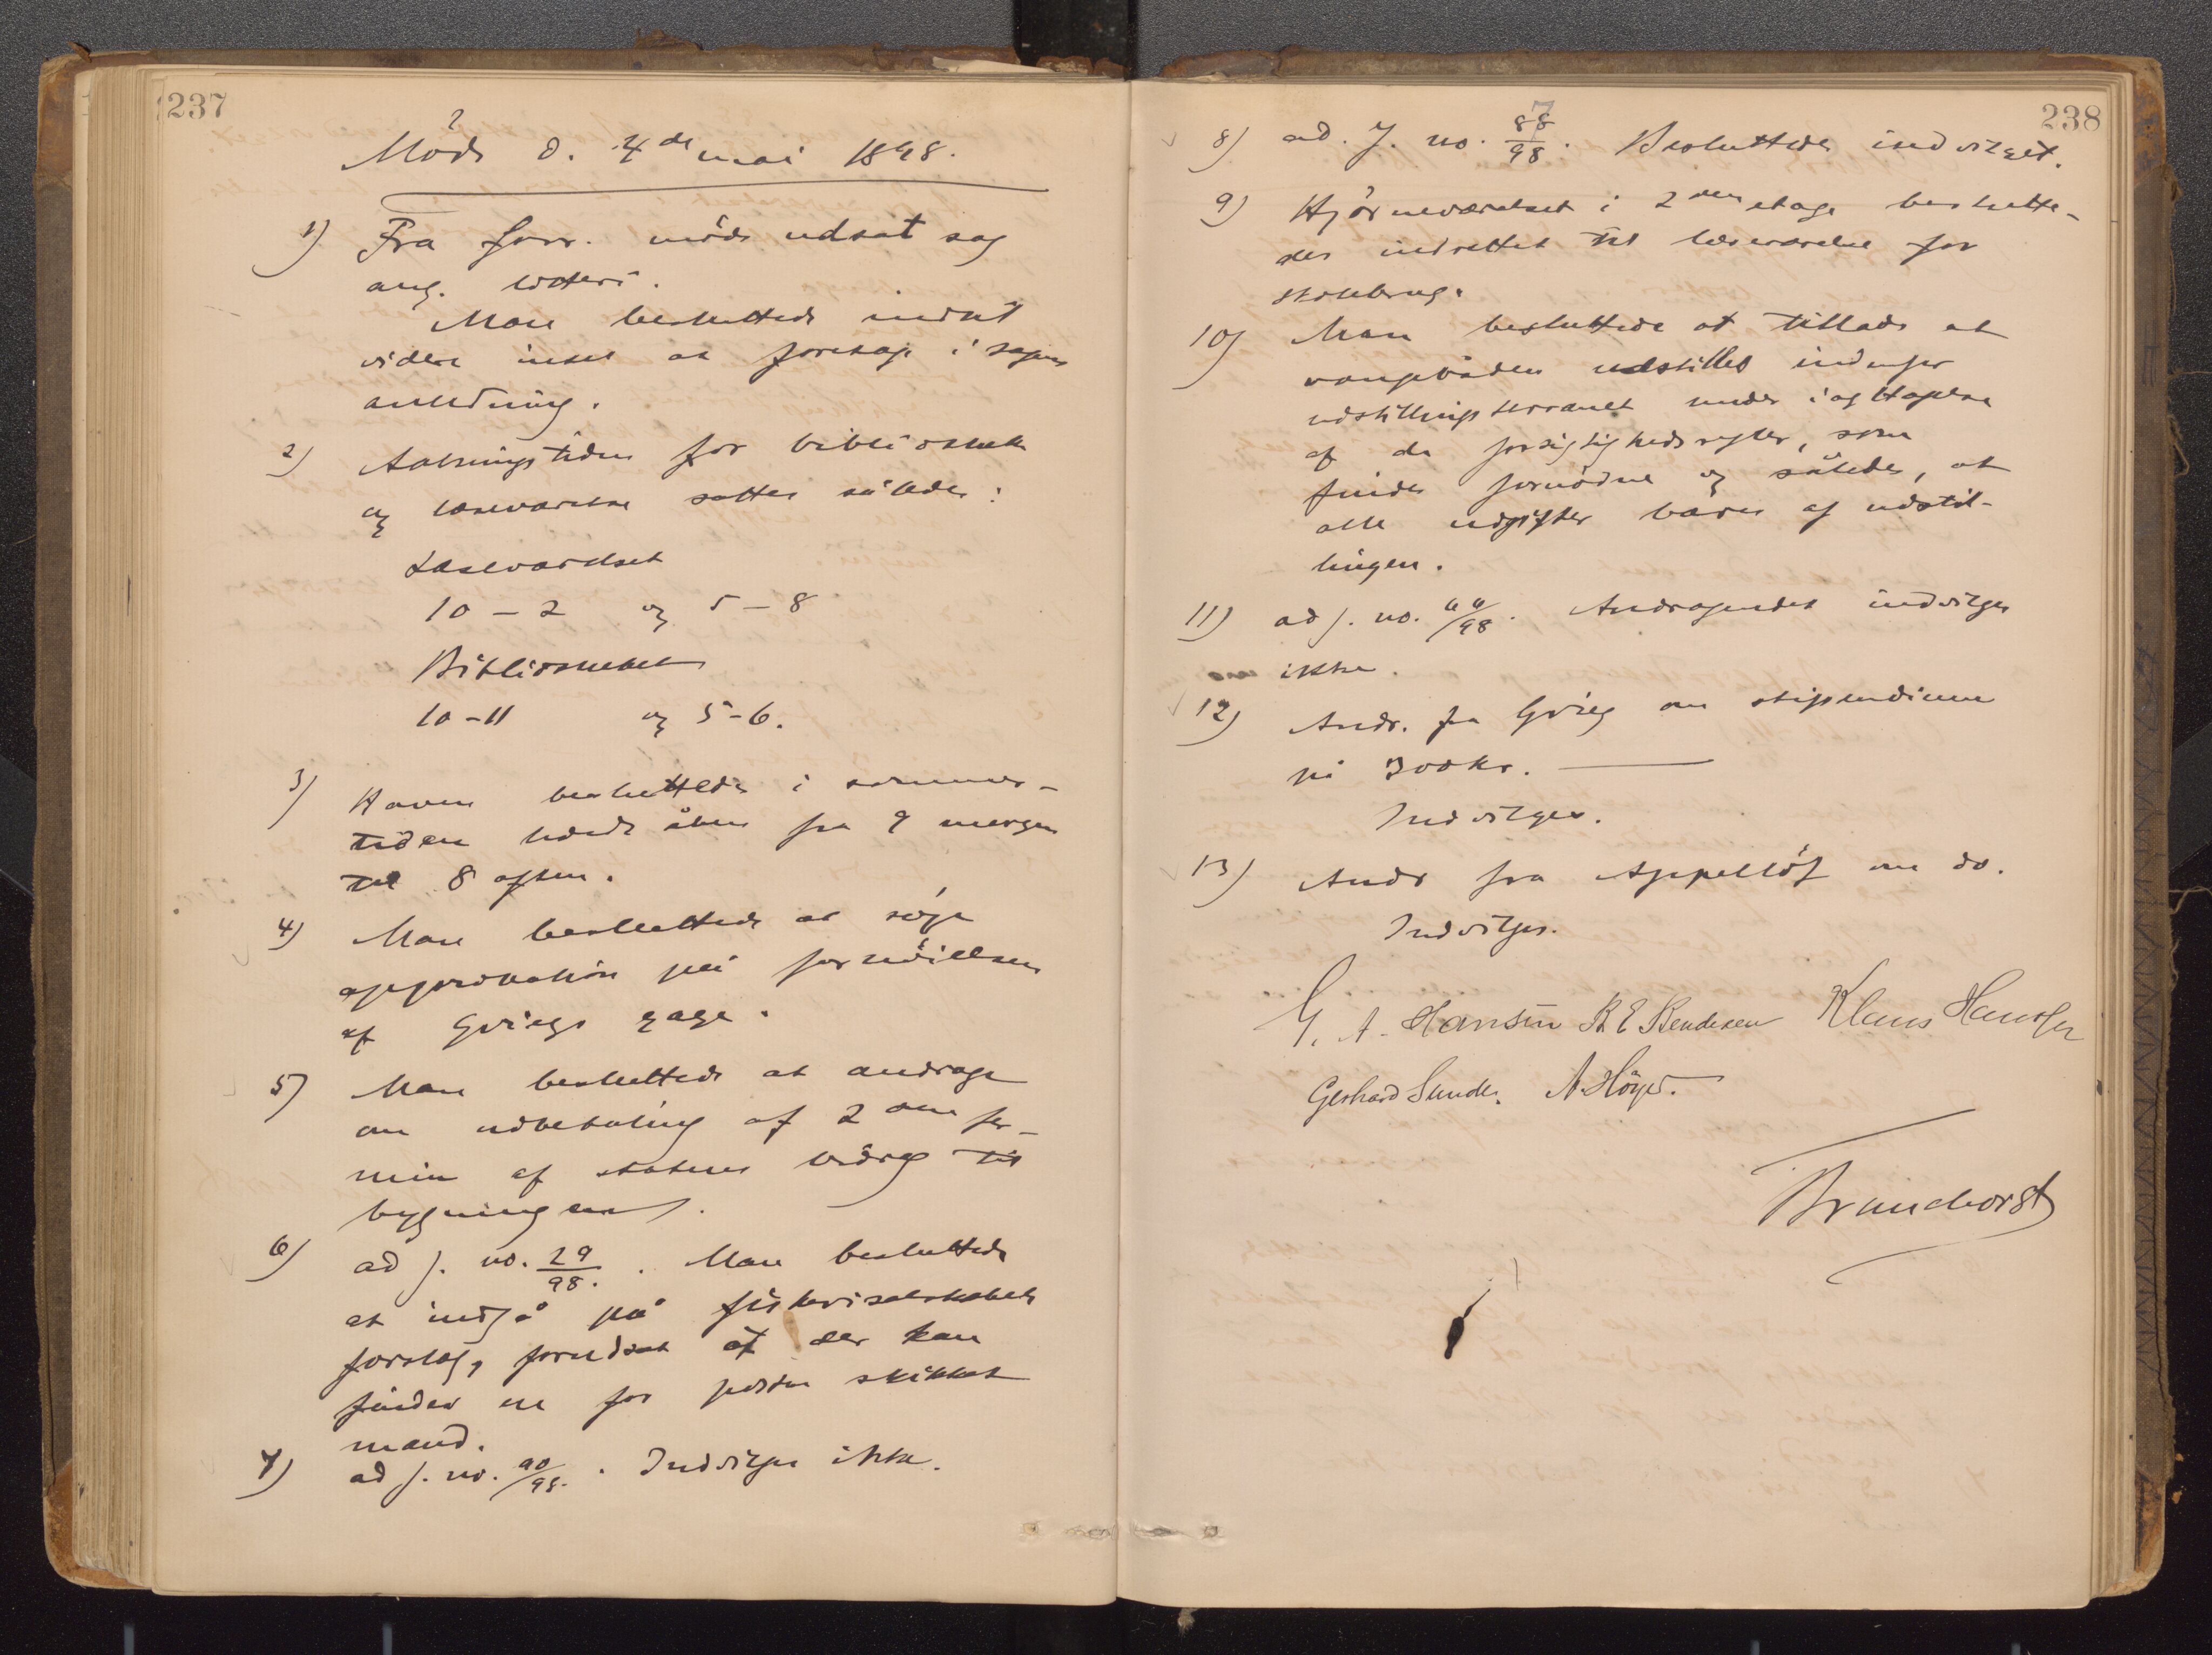 237
Möde d. 4de mai 1898.
1) Fra forr. möde udsat sag
ang. lotteri.
Man besluttede indtil
videre intet at foretage i sagens
anledning.
2) Aabningstiden for bibliothek
og læseværelse sattes således:
Læseværelset
10 – 2 og 5 – 8
Bibliotheket
10 – 11 og 5 – 6.
3) Haven besluttedes i sommer-
tiden holdt åben fra 9 morgen
til 8 aften.
4) Man besluttede at söge
approbation på forhöielsen
af Griegs gage.
5) Man besluttede at andrage
om udbetaling af 2den ter-
min af statens bidrag til
bygningen.
6) ad j. no. 29/98. Man besluttede
at indgå på fiskeriselskabets
forslag, forudsat at der kan
findes en for posten skikket
mand.
7) ad j. no. 90/98. Indvilges ikke.
238
8) ad. J. no. 87/98. Besluttedes indvilget.
9) Hjörneværelset i 2den etage beslutte-
des indrettet til læseværelse for
skolebrug.
10) Man besluttede at tillade at
udstilles indenfor
udstillingsterrænet under iagttagelse
af de forsigtighedsregler, som
findes fornödne og således, at
alle udgifter bæres af udstil-
lingen.
11) ad j. no. 66/98. Andragendet indvilges
ikke.
12) Andr. fra Grieg om stipendium
på 300 kr.
Indvilges.
13) Andr fra Appellöf om do.
Indvilges.
G. A. Hansen B E Bendixen Klaus Hanssen
Gerhard Sunde. A. Höyer.
Brunchorst